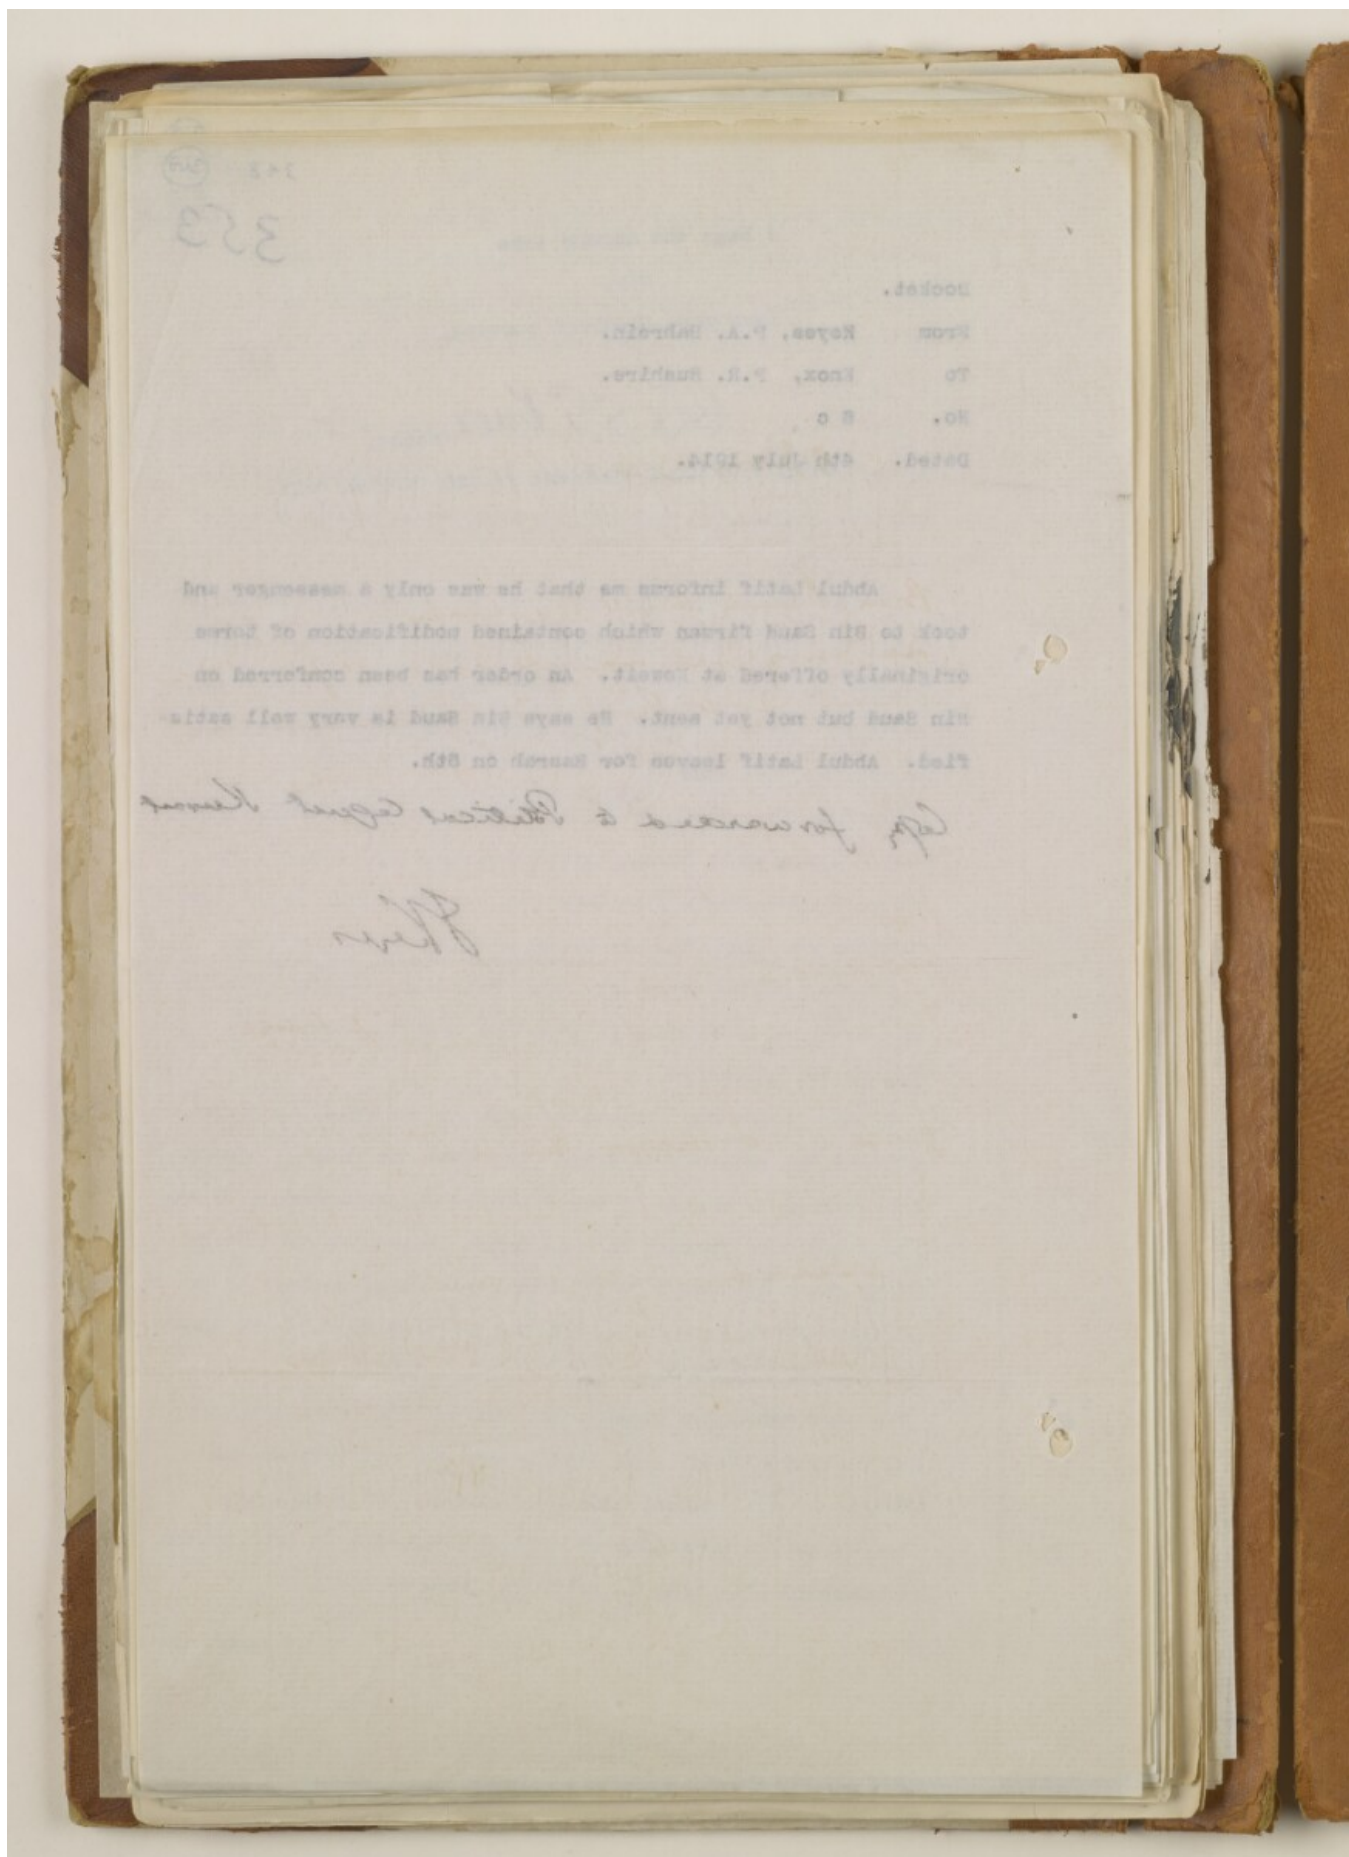 353
Docket.
From Keyes, P.A. Bahrein.
To Knox, P.R. Bushire.
No. 8 c
Dated. 4th July 1914.
Abdul Latif informs me that he was only a messenger and
took to Bin Saud firman which contained modification of terms
originally offered at Koweit. An order has been conferred on
Bin Saud but not yet sent. He says Bin Saud is very well satis-
fied. Abdul Latif leaves for Basrah on 5th.
Copy forwarded to Political Agent Kuwait